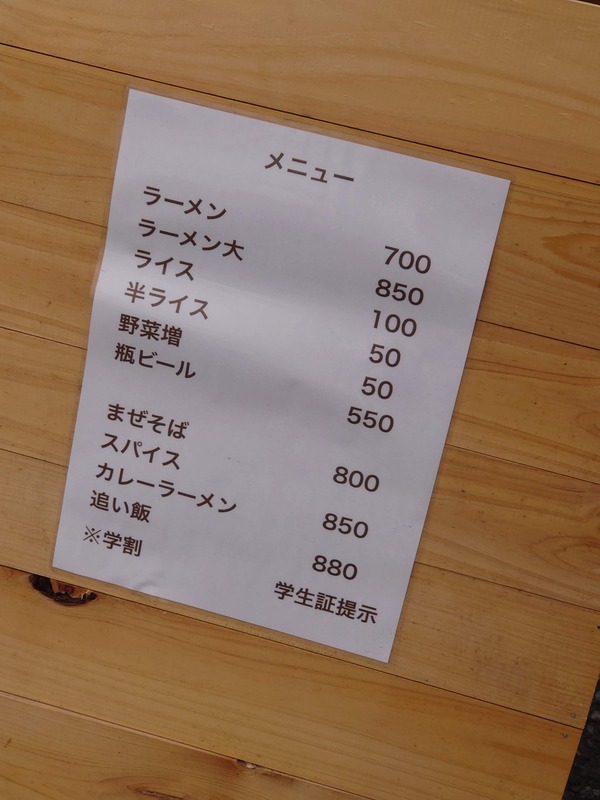 メニュー
ラーメン 700
ラーメン大 850
ライス 100
半ライス 50
野菜増 50
瓶ビール 550
まぜそば 800
スパイス
カレーラーメン 850
追い飯 880
※学割 学生証提示